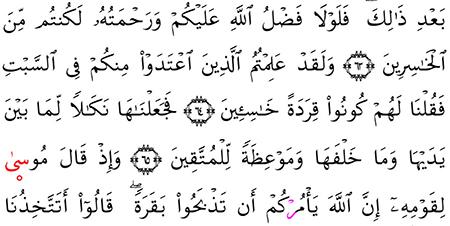 بَعْدِ ذَٰلِكَ ۖ فَلَوْلَا فَضْلُ ٱللَّهِ عَلَيْكُمْ وَرَحْمَتُهُۥ لَكُنتُم مِّنَ
ٱلْخَٰسِرِينَ ٦٣ وَلَقَدْ عَلِمْتُمُ ٱلَّذِينَ ٱعْتَدَوْا۟ مِنكُمْ فِى ٱلسَّبْتِ
فَقُلْنَا لَهُمْ كُونُوا۟ قِرَدَةً خَٰسِـِٔينَ ٦٤ فَجَعَلْنَٰهَا نَكَٰلًا لِّمَا بَيْنَ
يَدَيْهَا وَمَا خَلْفَهَا وَمَوْعِظَةً لِّلْمُتَّقِينَ ٦٥ وَإِذْ قَالَ مُوسىٰ
لِقَوْمِهِۦٓ إِنَّ ٱللَّهَ يَأْمُرْكُمْ أَن تَذْبَحُوا۟ بَقَرَةً ۖ قَالُوٓا۟ أَتَتَّخِذُنَا